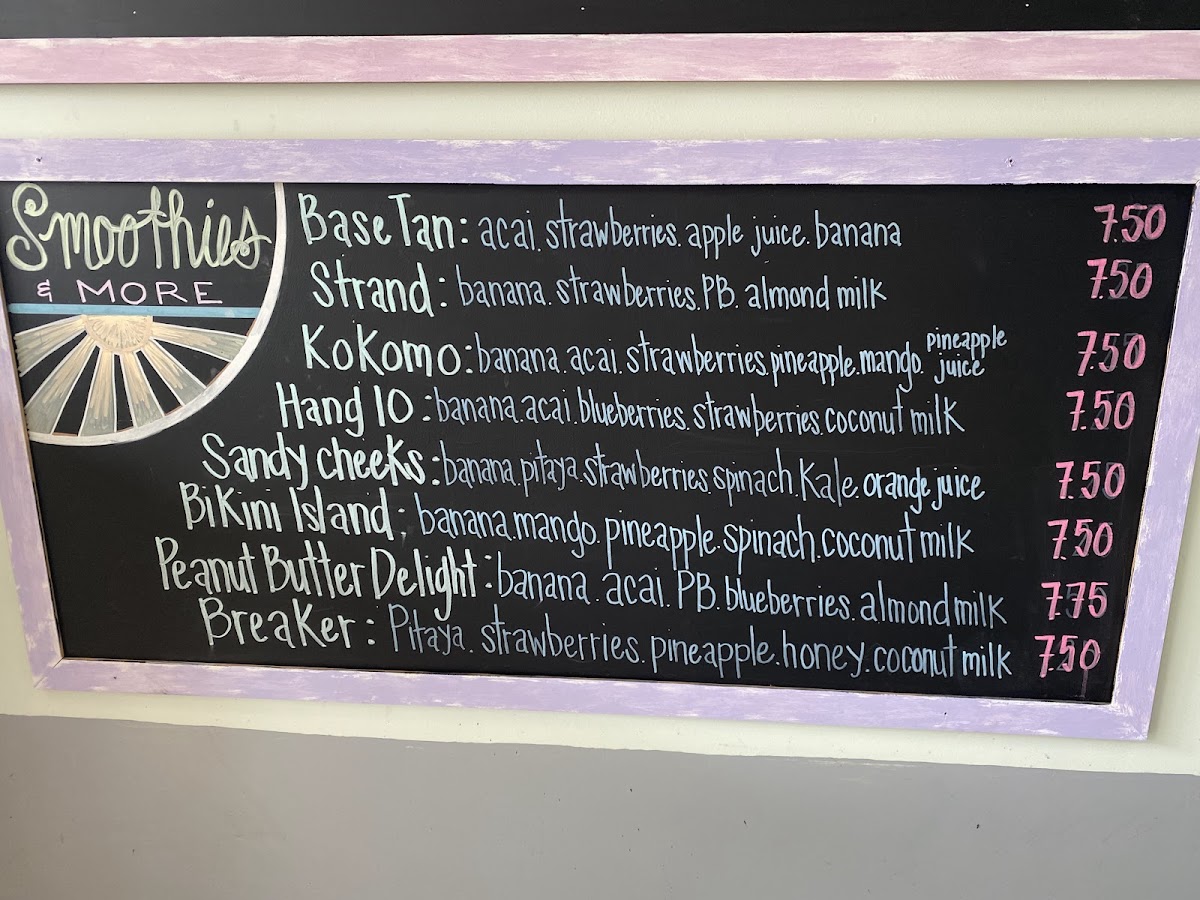 Smoothies
& MORE
Base Tan: acai. strawberries. apple juice. banana 7.50
Strand: banana. strawberries. PB. almond milk 7.50
KoKomo: banana. acai. strawberries. pineapple. mango. pineapple juice 7.50
Hang 10: banana. acai. blueberries. strawberries. coconut milk 7.50
Sandy cheeks: banana. pitaya. strawberries. spinach. Kale. orange juice 7.50
BiKini Island: banana. mango. pineapple. spinach. coconut milk 7.50
Peanut Butter Delight: banana. acai. PB. blueberries. almond milk 7.75
BreaKer: Pitaya. strawberries. pineapple. honey. coconut milk 7.50